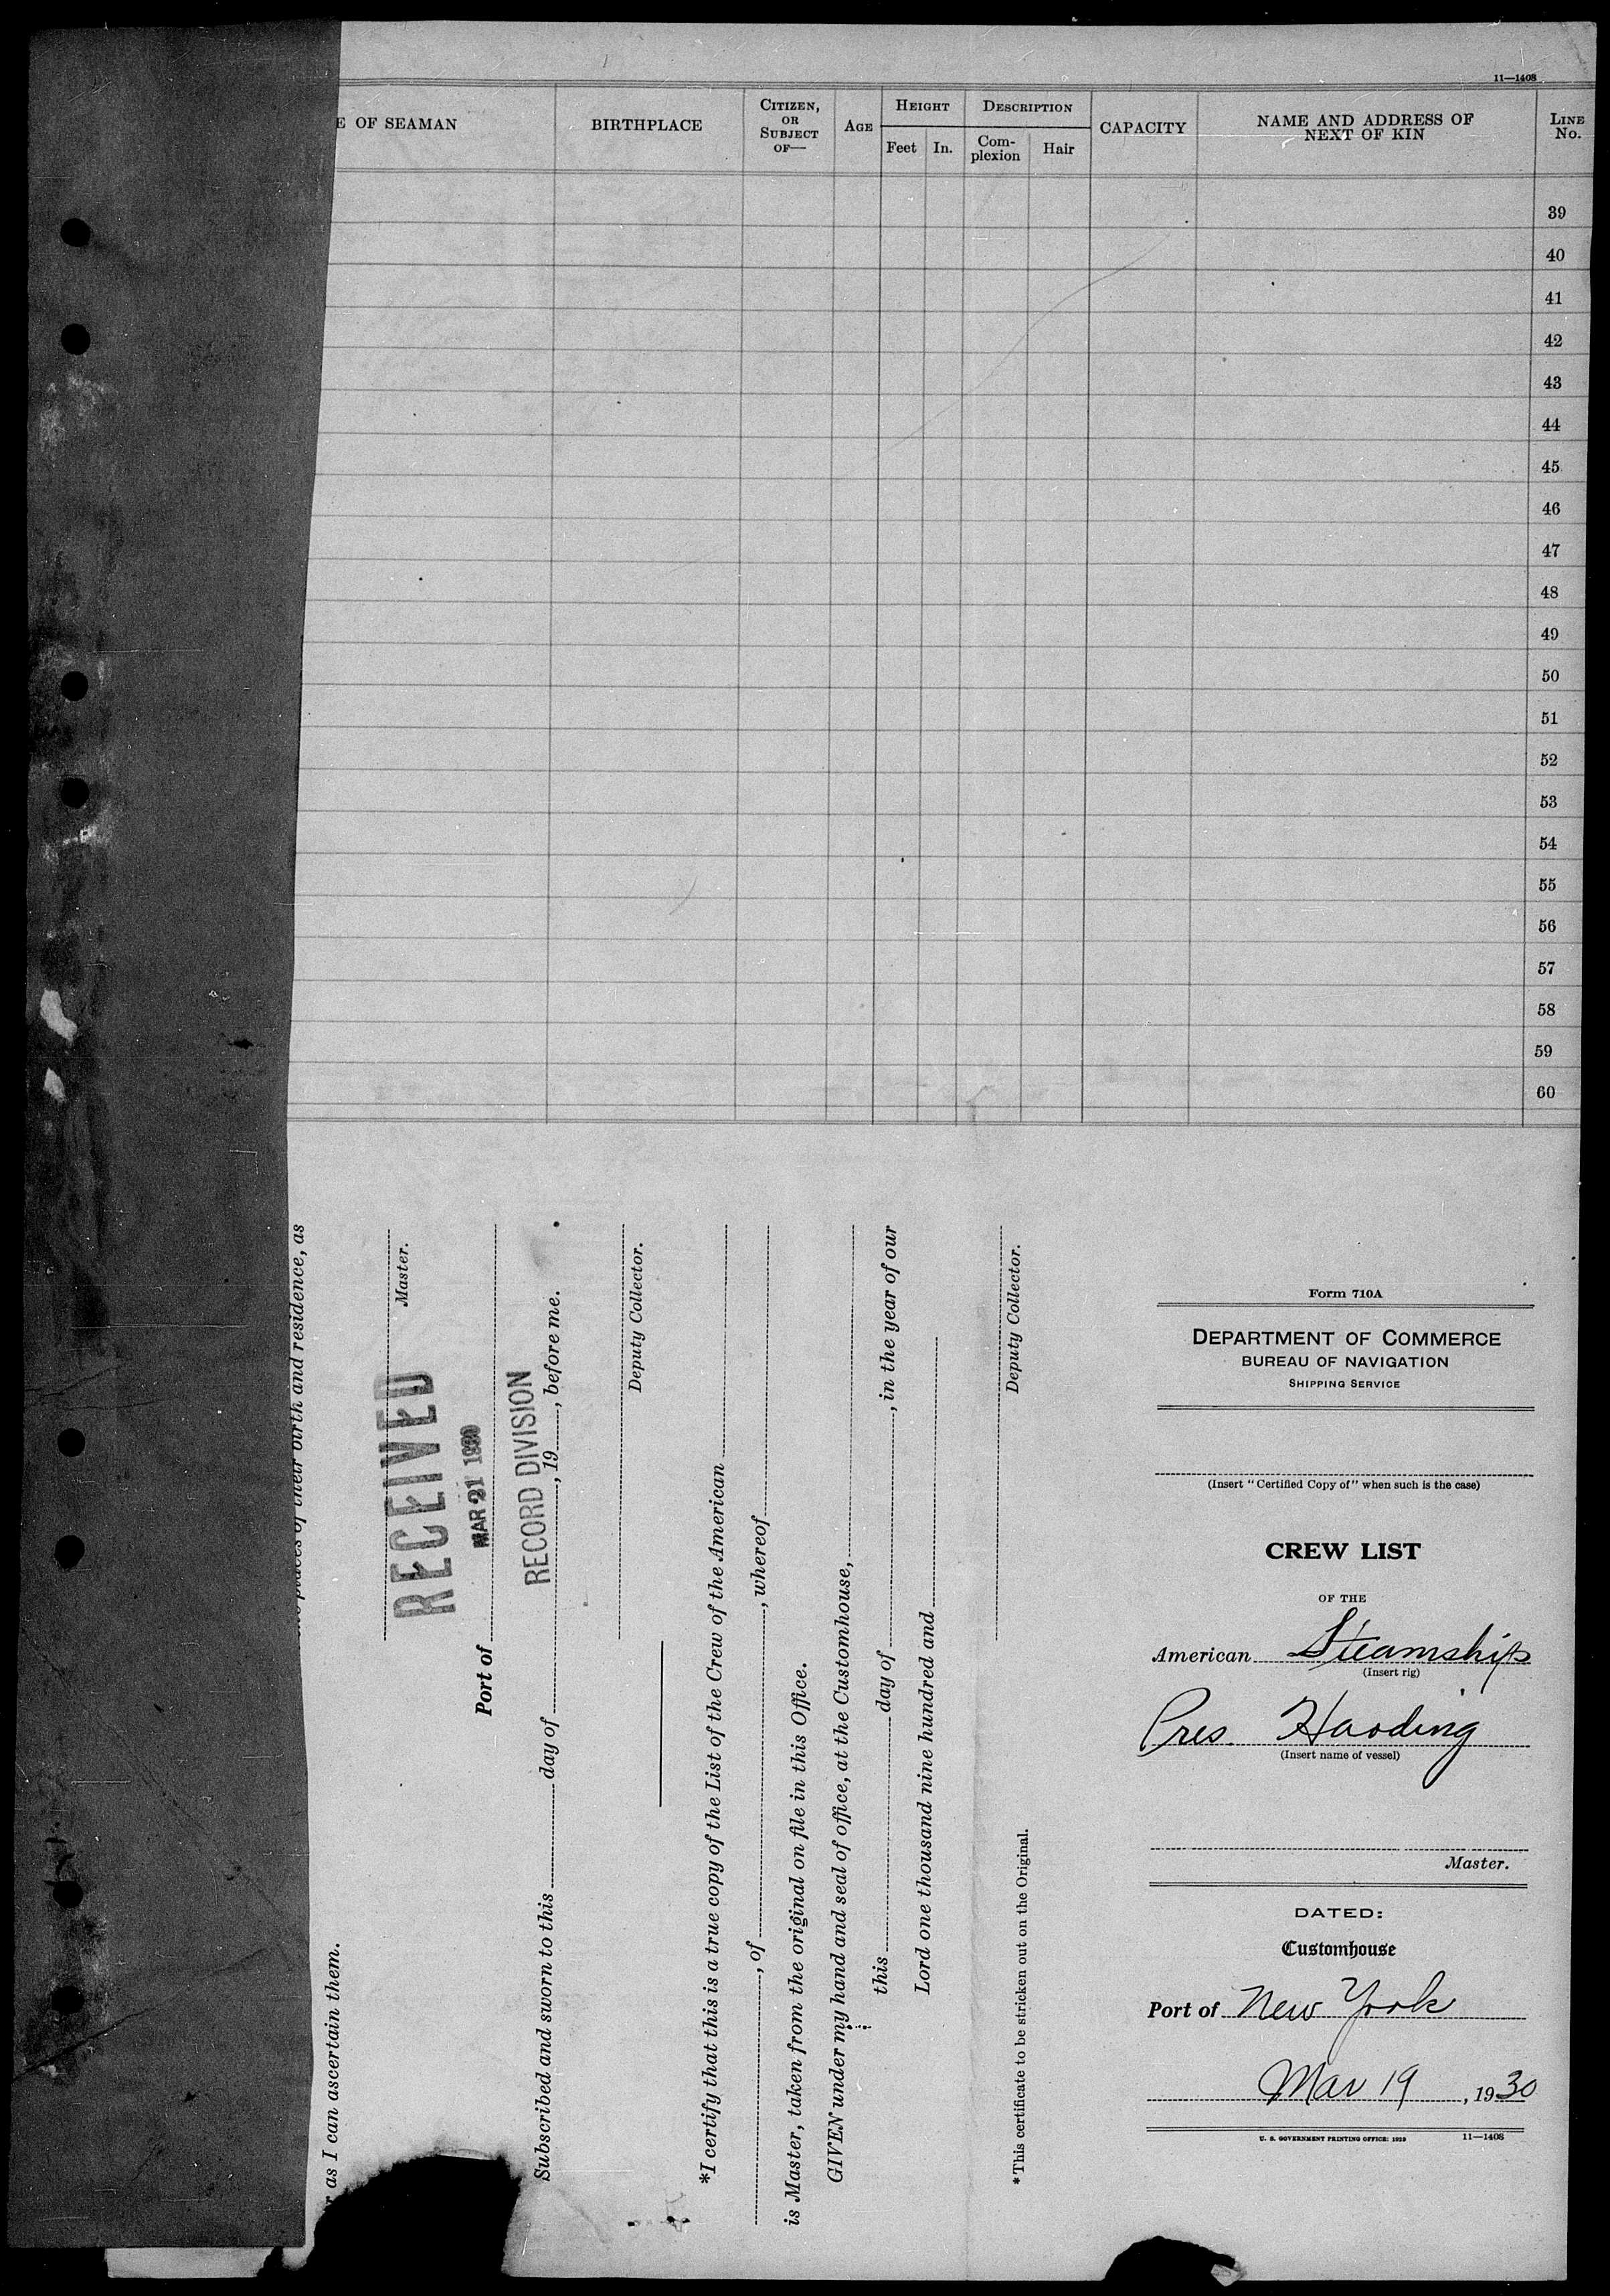 11—1408
E OF SEAMAN
BIRTHPLACE
CITIZEN, OR SUBJECT OF—
AGE
HEIGHT
Feet In.
DESCRIPTION
Com-plexion Hair
CAPACITY
NAME AND ADDRESS OF NEXT OF KIN
LINE No.
39
40
41
42
43
44
45
46
47
48
49
50
51
52
53
54
55
56
57
58
59
60
places of their birth and residence, as
r as I can ascertain them.
Master.
RECEIVED
MAR 21 1930
RECORD DIVISION
Port of
Subscribed and sworn to this day of , 19 , before me.
Deputy Collector.
*I certify that this is a true copy of the List of the Crew of the American
, of , whereof
is Master, taken from the original on file in this Office.
GIVEN under my hand and seal of office, at the Customhouse,
this day of , in the year of our
Lord one thousand nine hundred and
Deputy Collector.
*This certificate to be stricken out on the Original.
Form 710A
DEPARTMENT OF COMMERCE
BUREAU OF NAVIGATION
SHIPPING SERVICE
(Insert "Certified Copy of" when such is the case)
CREW LIST
OF THE
American Steamship
(Insert rig)
Pres. Harding
(Insert name of vessel)
Master.
DATED:
Customhouse
Port of New York
Mar 19, 1930
U. S. GOVERNMENT PRINTING OFFICE: 1929 11—1408